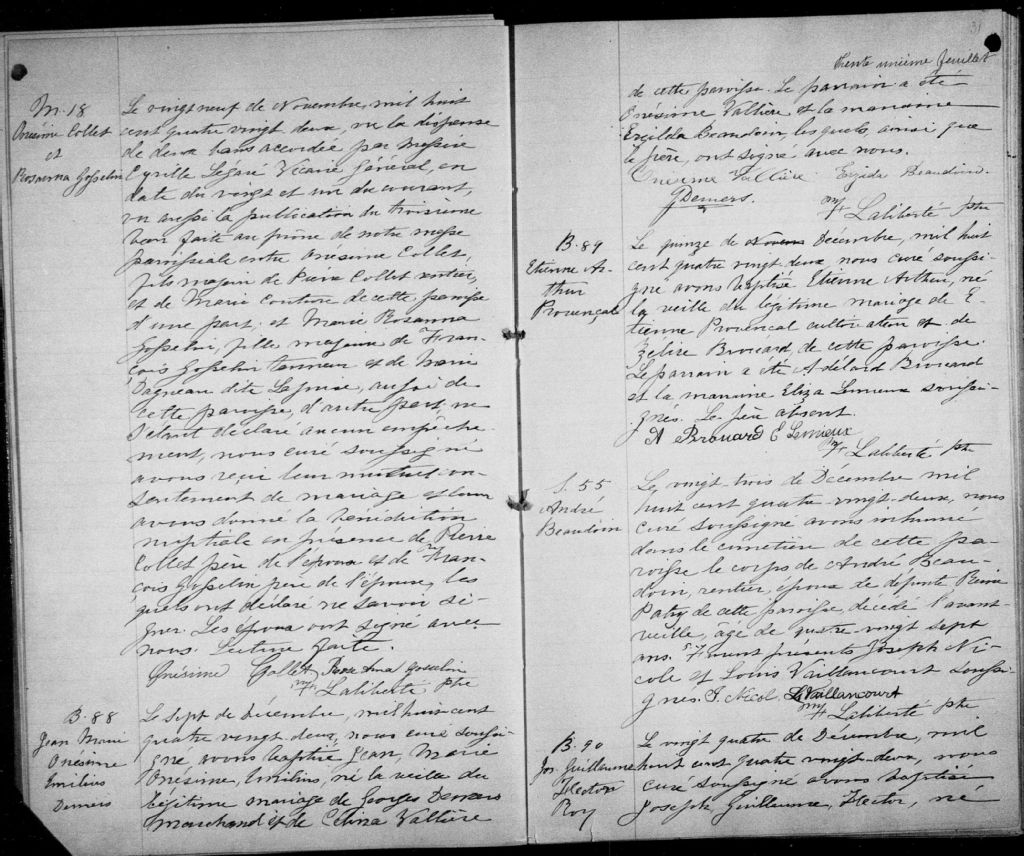 M. 18
Onésime Collet
et
Rosanna Gosselin
Le vingt neuf de Novembre, mil huit
cent quatre vingt deux, vu la dispense
de deux bans accordée par Messire
Cyrille Légaré Vicaire Général, en
date du vingt et un du courant,
vu aussi la publication du troisième
ban faite au prône de notre messe
paroissiale entre Onésime Collet,
fils majeur de Pierre Collet rentier,
et de Marie Couture de cette paroisse
d'une part, et Marie Rosanna
Gosselin, fille majeure de Fran-
çois Gosselin tanneur et de Marie
Dagneau dite Laprise, aussi de
cette paroisse, d'autre part, ne
s'étant déclaré aucun empêche-
ment, nous curé soussigné
avons reçu leur mutuel con-
sentement de mariage et leur
avons donné la bénédiction
nuptiale en présence de Pierre
Collet père de l'époux et de Fran-
çois Gosselin père de l'épouse, les
quels ont déclaré ne savoir si-
gner. Les époux ont signé avec
nous. Lecture faite.
Onésime Collet Rose Ana Gosselin
Laliberté ptre
B. 88
Jean Marie
Onésime
Emilius
Demers
Le sept de Décembre, mil huit cent
quatre vingt deux, nous curé soussi-
gné, avons baptisé Jean, Marie
Onésime, Emilius, né la veille du
légitime mariage de Georges Demers
marchand et de Celina Vallière
31
Trente unième feuillet
de cette paroisse. Le parrain a été
Onésime Vallière et la marraine
Exzilda Beaudoin lesquels, ainsi que
le père, ont signé avec nous.
Onésime Vallière Exzilda Beaudoin
G Demers.
Laliberté ptre
B. 89
Etienne Ar-
thur
Provençal
Le quinze de Novem Décembre, mil huit
cent quatre vingt deux nous curé soussi-
gné avons baptisé Etienne Arthur, né
la veille du légitime mariage de E-
tienne Provençal cultivateur et de
Zélire Brouard, de cette paroisse.
Le parrain a été Adélard Brouard
et la marraine Eliza Lemieux soussi-
gnés. Le père absent.
A Brouard E Lemieux
Laliberté ptre
S. 55
André
Beaudoin
Le vingt trois de Décembre mil
huit cent quatre-vingt-deux, nous
curé soussigné avons inhumé
dans le cimetière de cette pa-
roisse le corps de André Beau-
doin, rentier, époux de défunte Reine
Patry de cette paroisse, décédé l'avant
veille, âgé de quatre vingt sept
ans. Furent présents Joseph Ni-
cole et Louis Vaillancourt soussi-
gnés. J. Nicol L Vaillancourt
Laliberté ptre
B. 90
Jos. Guillaume
Hector
Roy
Le vingt quatre de Décembre, mil
huit cent quatre vingt-deux, nous
curé soussigné avons baptisé
Joseph Guillaume, Hector, né